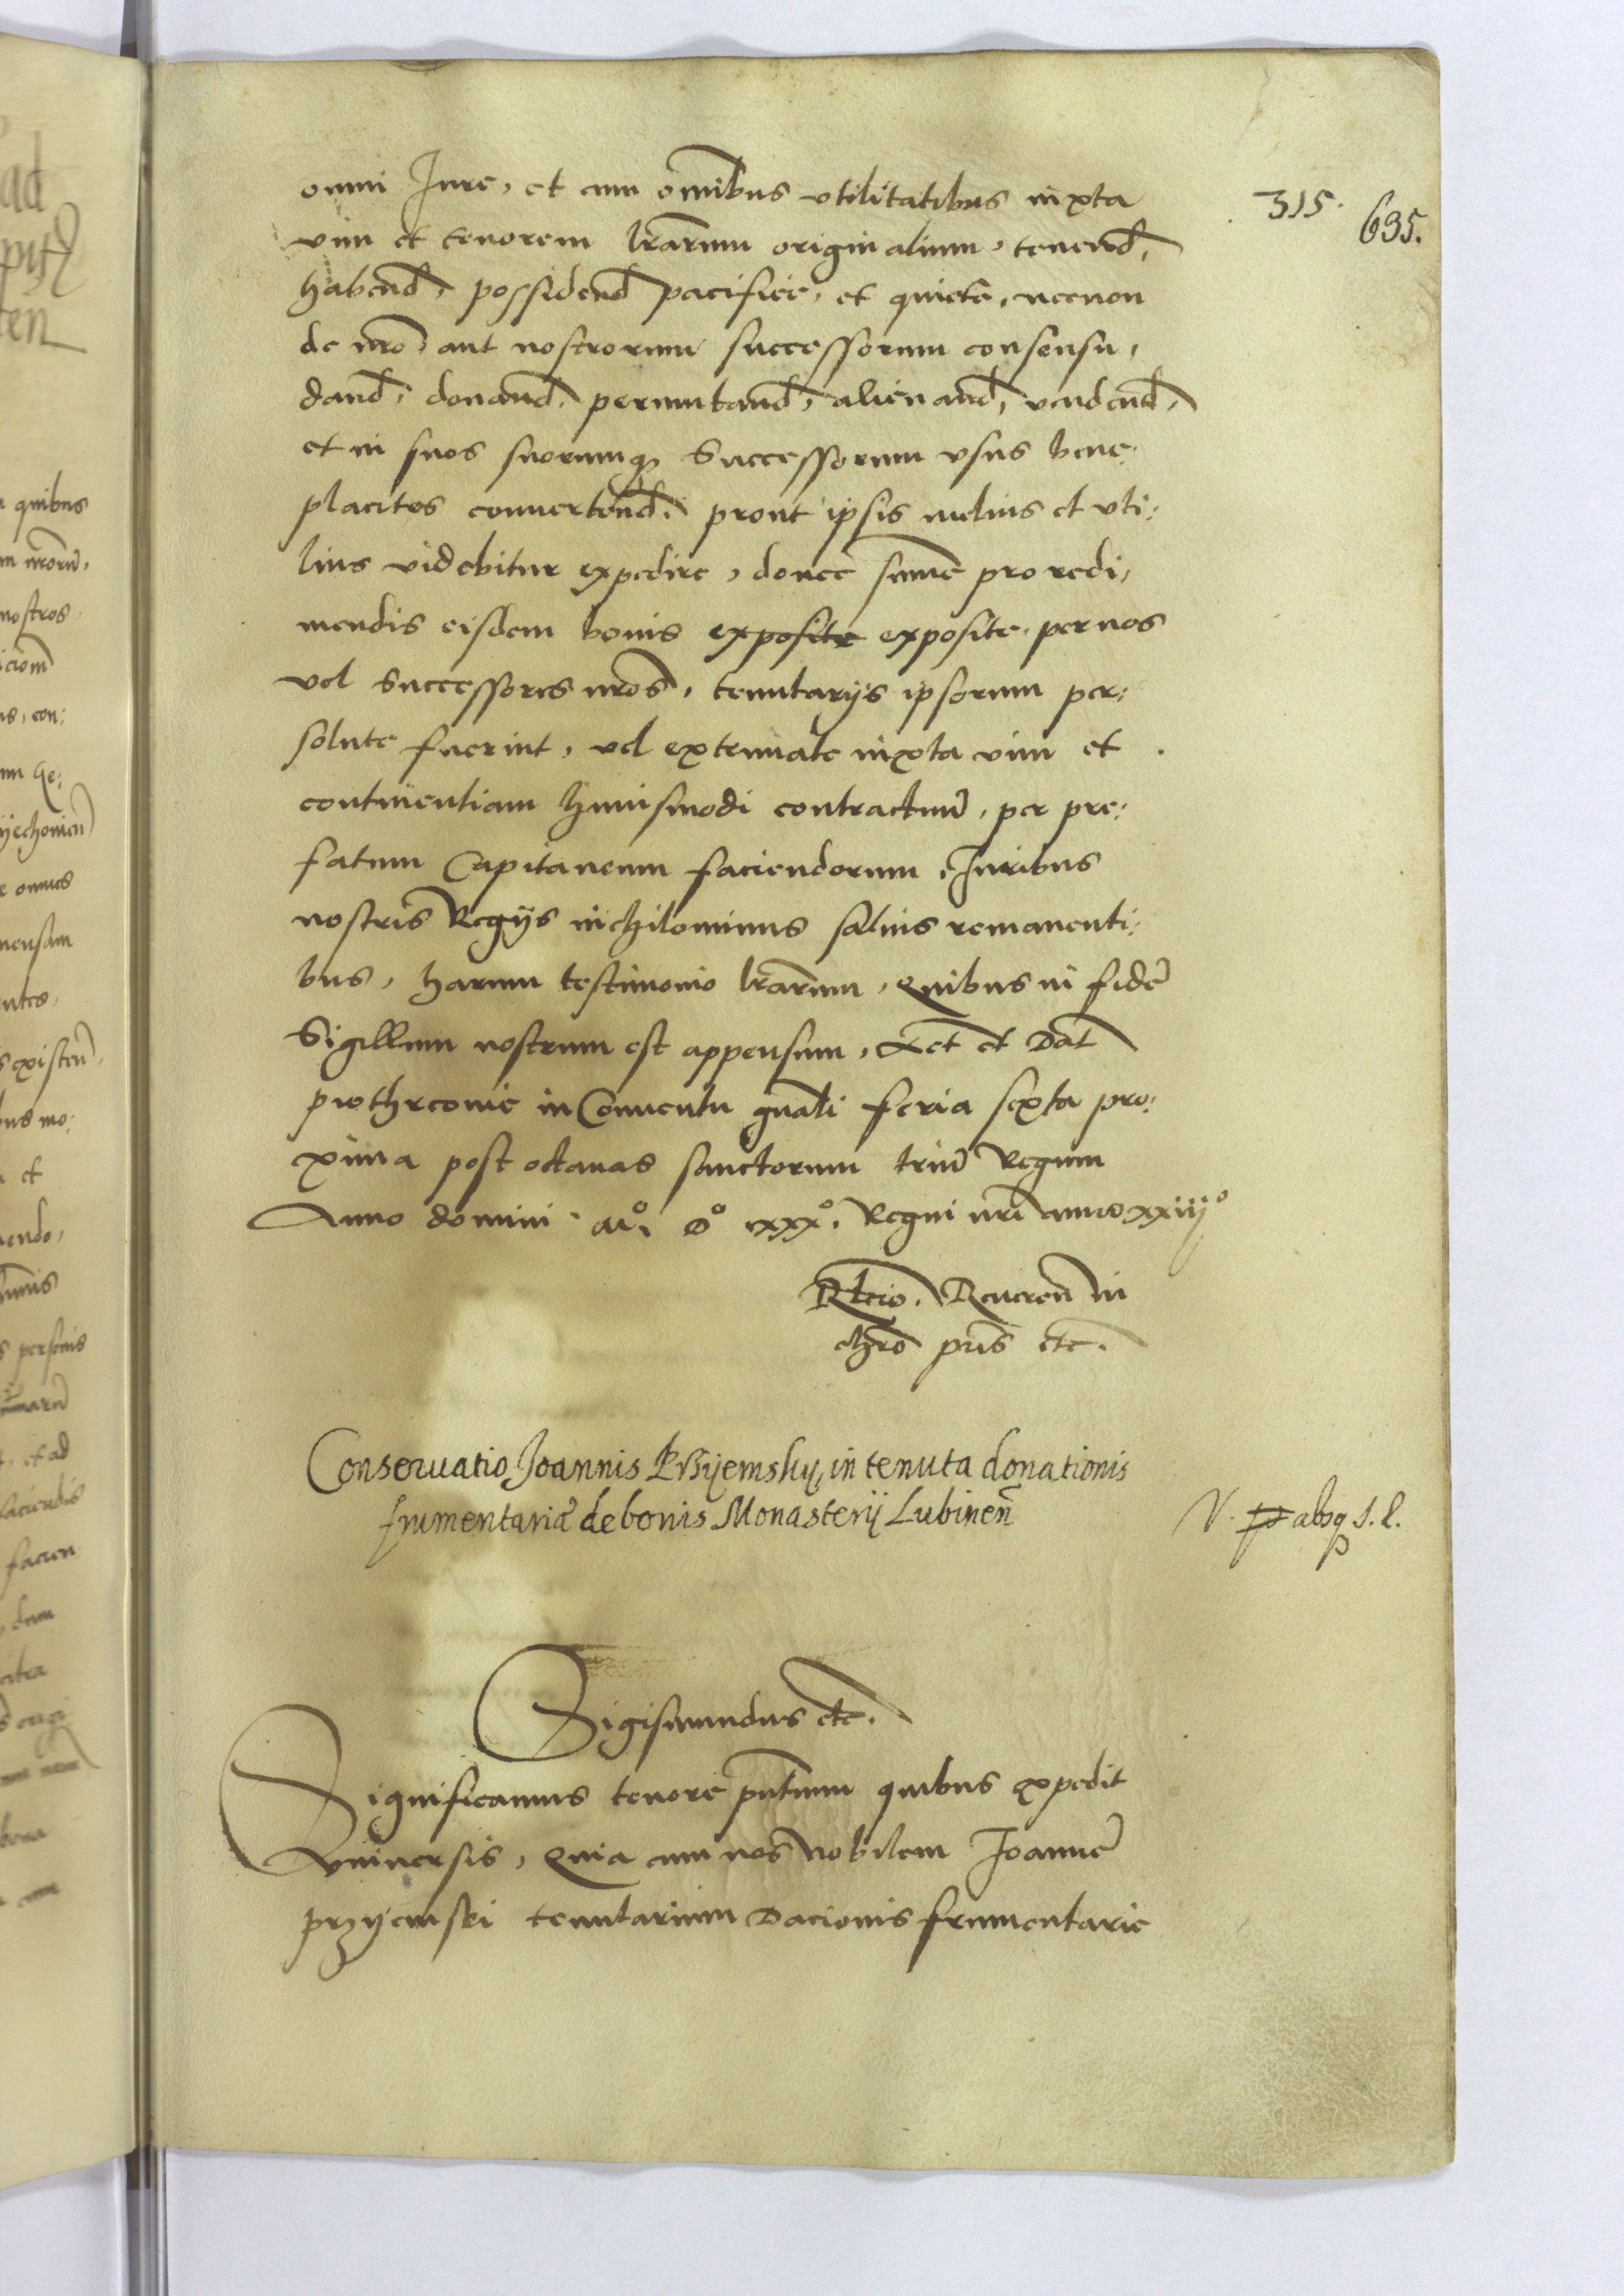 315.
635.
omni Jure, et cum omibus vtilitatibus iuxta
vim et tenorem lrarum originalium, tenend,
habend, possidend pacifice, et quiete, necnon
de nro aut nostrorum successorum consensu,
dand, donand, permutand, alienand, vendend,
et in suos suorumq Successorum vsus bene:
placitos conuertend, prout ipsis melius et vti:
lius videbitur expedire, donec sume pro redi,
mendis eisdem bonis exposite exposite, per nos
vel Successores nros, tenutarijs ipsorum per:
solute fuerint, vel extenuate iuxta vim et
continentiam huiusmodi contractuum, per pre:
fatum Capitaneum faciendorum, Juribus
nostris Regijs nichilominus saluis remanenti:
bus, harum testimonio lrarum, Quibus in fide
Sigillum nostrum est appensum, Act et Dat
piothrconie in Conuentu gnali feria sexta pro:
xima post octauas sanctorum trium Regum
Anno domini Mo. Do xxxo. Regni nri anno xxiiijo
Rlcio. Reueren in
chro pris etc.
Conseruatio Joannis Przyemsky, in tenuta donationis
frumentarie de bonis Monasterij Lubinen
absq s. l.
Sigismundus etc.
Significamus tenore pntium quibus expedit
Vniuersis, Quia cum nos Nobilem Joanne
przyemski tenutarium Dacionis frumentarie